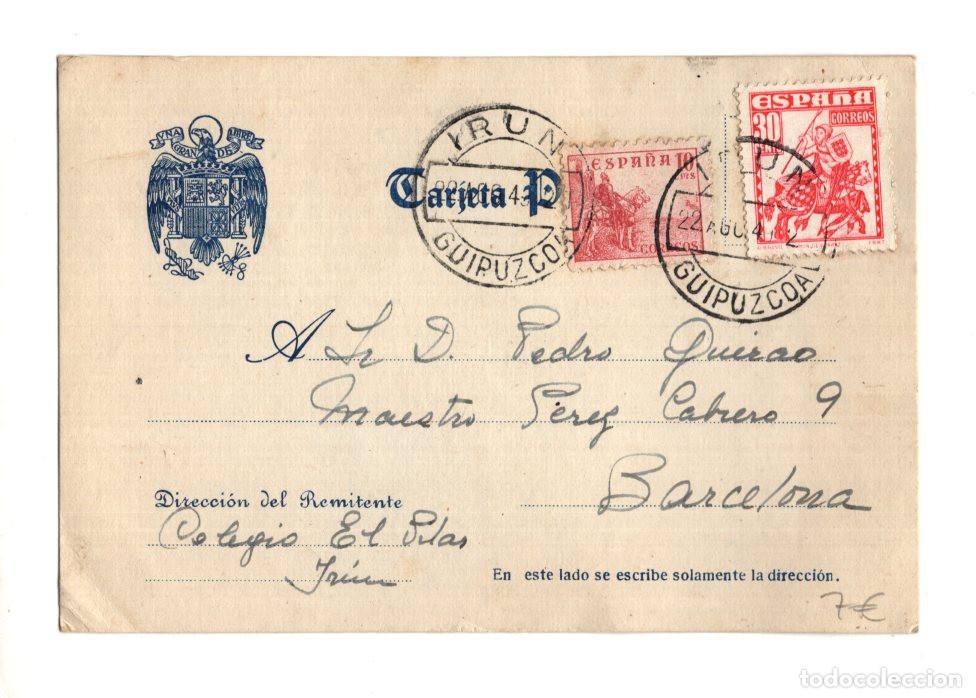 UNA GRANDE LIBRE
ESPAÑA
30
CORREOS
IRUN
22 AGO 4
GUIPUZCOA
ESPAÑA 10
CTS
CORREOS
IRUN
22 AGO 4 2
GUIPUZCOA
Tarjeta P
A Sr D. Pedro Quirao
Maestro Pérez Cabrero 9
Barcelona
Dirección del Remitente
Colegio El Pilar
Irún
En este lado se escribe solamente la dirección.
7€
todocoleccion